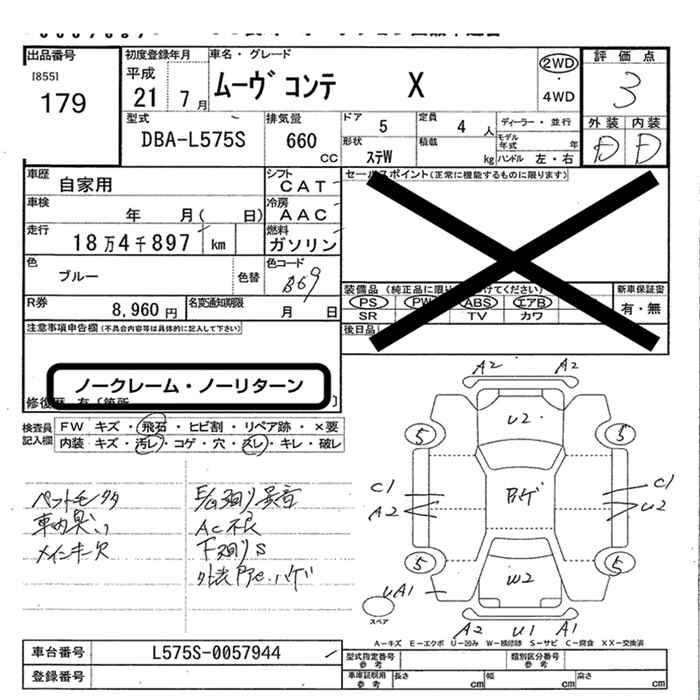 出品番号
[855]
179
初度登録年月
平成
21 7 月
車名・グレード
ムーヴ コンテ X
2WD
・
4WD
評価点
3
外装 内装
D D
型式
DBA-L575S
排気量
660 cc
ドア 5
定員 4 人
ディーラー・並行
モデル年式 年
形状 ステW
積載 kg
ハンドル 左・右
車歴 自家用
シフト CAT
セールスポイント(正常に機能するものに限ります)
車検 年 月( 日)
冷房 AAC
走行 18万4千897 km
燃料 ガソリン
色 ブルー 色替
色コード B69
装備品 (純正品に限り
けてください)
新車保証書
有・無
PS PW ABS エアB
SR TV カワ
後日品
R券 8,960 円
名変通知期限 月 日
注意事項申告欄(不具合内容等は具体的に記入して下さい)
ノークレーム・ノーリターン
検査員記入欄
FW キズ・飛石・ヒビ割・リペア跡・×要
内装 キズ・汚レ・コゲ・穴・スレ・キレ・破レ
ペットモノ
車内臭い
メインキー欠
E/G廻り異音
AC不良
下廻りS
A2 A2
U2
5 5
C1
A2
Bゲ
C1
U2
5 5
W2
UA1
A2 U1 A1
スペア
A-キズ E-エクボ U-凹み W-補修跡 S-サビ C-腐食 XX-交換済
車台番号 L575S-0057944
登録番号
型式指定番号 参考
類別区分番号 参考
車庫証明用 参考
長さ cm 幅 cm 高さ cm